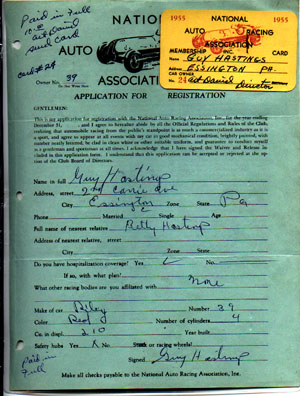 Paid in Full
10.00
Act David
Sent Card
Card #24
NATIONAL
AUTO RACING
ASSOCIATION
Owner No. 39
1955 NATIONAL 1955
AUTO RACING
ASSOCIATION
MEMBERSHIP CARD
Name GUY HASTINGS
Address ESSINGTON PA.
CAR OWNER
No. 24 Act David
Director
APPLICATION FOR REGISTRATION
GENTLEMEN:
This is my application for registration with the National Auto Racing Association, Inc., for the year ending
December 31, and I agree to hereafter abide by all the Official Rules and Regulations of the Club,
realizing that automobile racing from the public's standpoint is as much a commercialized industry as it is
a sport, and agree to appear at all events with my car in good mechanical condition, brightly painted, with
number neatly lettered, be clad in clean white or other suitable uniform, and guarantee to conduct myself
as a gentleman and sportsman at all times. I agree that I have signed the Waiver and Release in-
cluded in this application form. I understand that this application can be accepted or rejected at the op-
tion of the Club Board of Directors.
Name in full Guy Hastings
Address, street 2nd Corrie Ave
City Essington Zone State Pa
Phone Married Single Age
Full name of nearest relative Betty Hastings
Address of nearest relative, street
City Zone State
Do you have hospitalization coverage? Yes No
If so, with what plan?
What other racing bodies are you affiliated with None
Make of car Riley Number 39
Color Red Number of cylinders 4
Cu. in displ. 210 Year built
Safety hubs Yes X No Stock or racing wheels?
Paid in
Full
Signed Guy Hastings
Make all checks payable to the National Auto Racing Association, Inc.